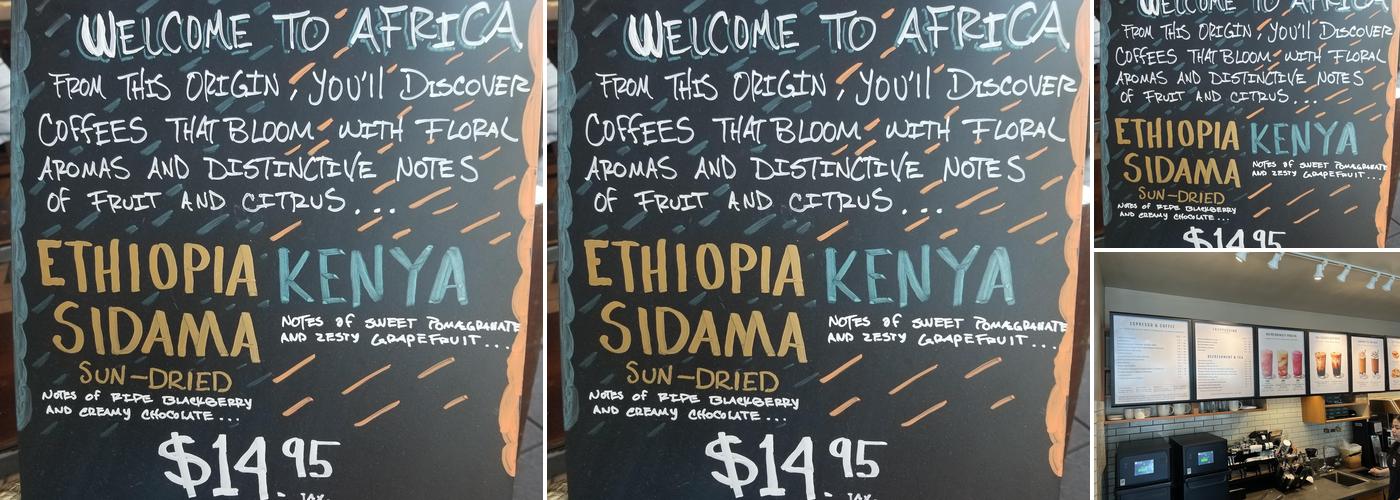 WELCOME TO AFRICA
FROM THIS ORIGIN, YOU'll DISCOVER
COFFEES THAT BLOOM WITH FLORAL
AROMAS AND DISTINCTIVE NOTES
OF FRUIT AND CITRUS...
ETHIOPIA
SIDAMA
SUN-DRIED
NOTES OF RIPE BLACKBERRY
AND CREAMY CHOCOLATE...
KENYA
NOTES OF SWEET POMEGRANATE
AND ZESTY GRAPEFRUIT...
$14.95
WELCOME TO AFRICA
FROM THIS ORIGIN, YOU'll DISCOVER
COFFEES THAT BLOOM WITH FLORAL
AROMAS AND DISTINCTIVE NOTES
OF FRUIT AND CITRUS...
ETHIOPIA
SIDAMA
SUN-DRIED
NOTES OF RIPE BLACKBERRY
AND CREAMY CHOCOLATE...
KENYA
NOTES OF SWEET POMEGRANATE
AND ZESTY GRAPEFRUIT...
$14.95
WELCOME TO AFRICA
FROM THIS ORIGIN, YOU'll DISCOVER
COFFEES THAT BLOOM WITH FLORAL
AROMAS AND DISTINCTIVE NOTES
OF FRUIT AND CITRUS...
ETHIOPIA
SIDAMA
SUN-DRIED
NOTES OF RIPE BLACKBERRY
AND CREAMY CHOCOLATE...
KENYA
NOTES OF SWEET POMEGRANATE
AND ZESTY GRAPEFRUIT...
$14.95
ESPRESSO & COFFEE
REFRESHMENT & TEA